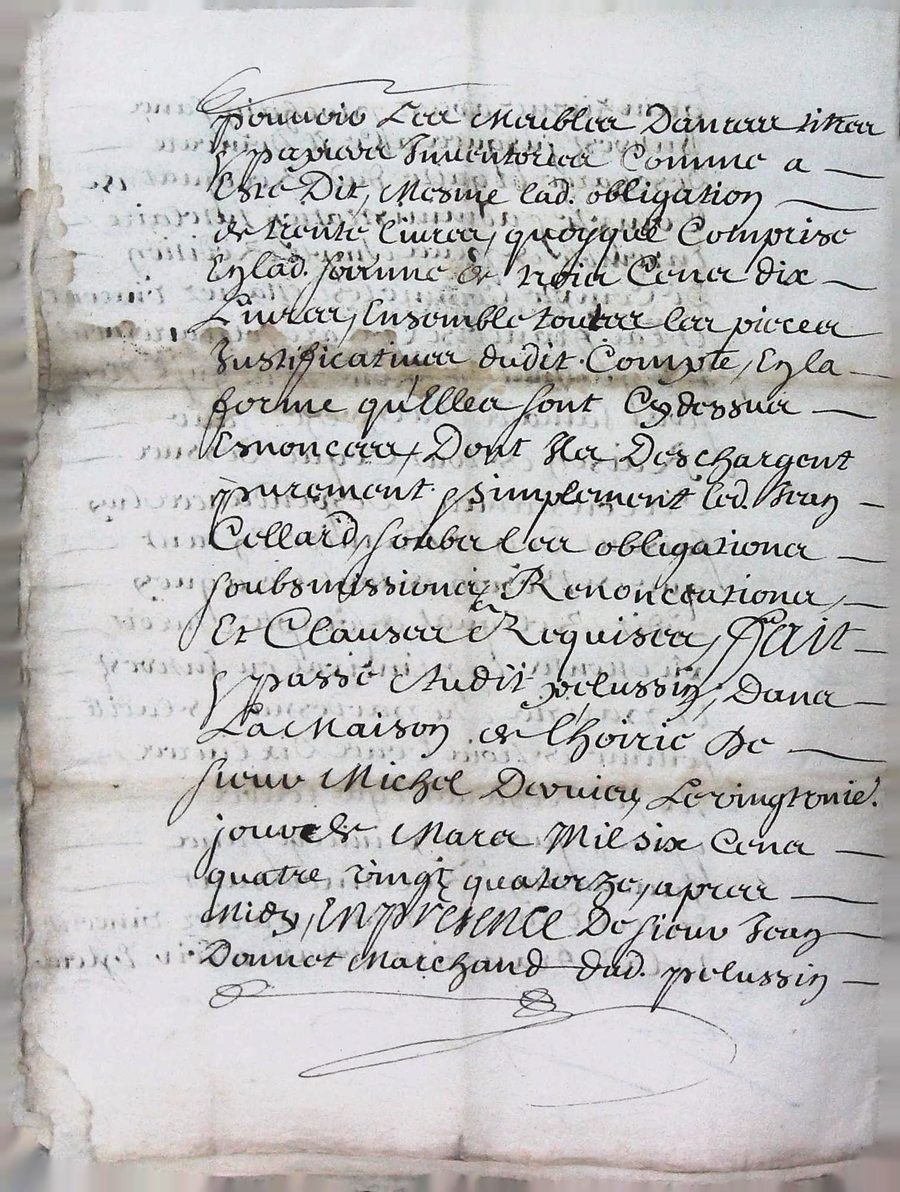 pouvoir Les Meubles Danrees titres
& papiers Inventories Comme a
Esté Dit, Mesme lad. obligation
de trente livres, quoyque Comprise
En lad. somme de trois Cens dix
Livres, Ensemble toutes les pieces
Justificatives dudit Compte, En la
forme qu'Elles sont Cy dessus
Esnoncees, Dont Ils Deschargent
purement & simplement led. Jean
Collard, soubs les obligations
soubsmissions, Renonceations,
Et Clauses Requises, ffait
& passé Audit pelussin, Dans
La Maison de l'hoirie De
sieur Michel Dervieu, Le vingtroisie.
jour de Mars Mil six Cens
quatre vingt quatorze, apres
midy, En presence De sieur Jean
Donnet Marchand dud. pelussin